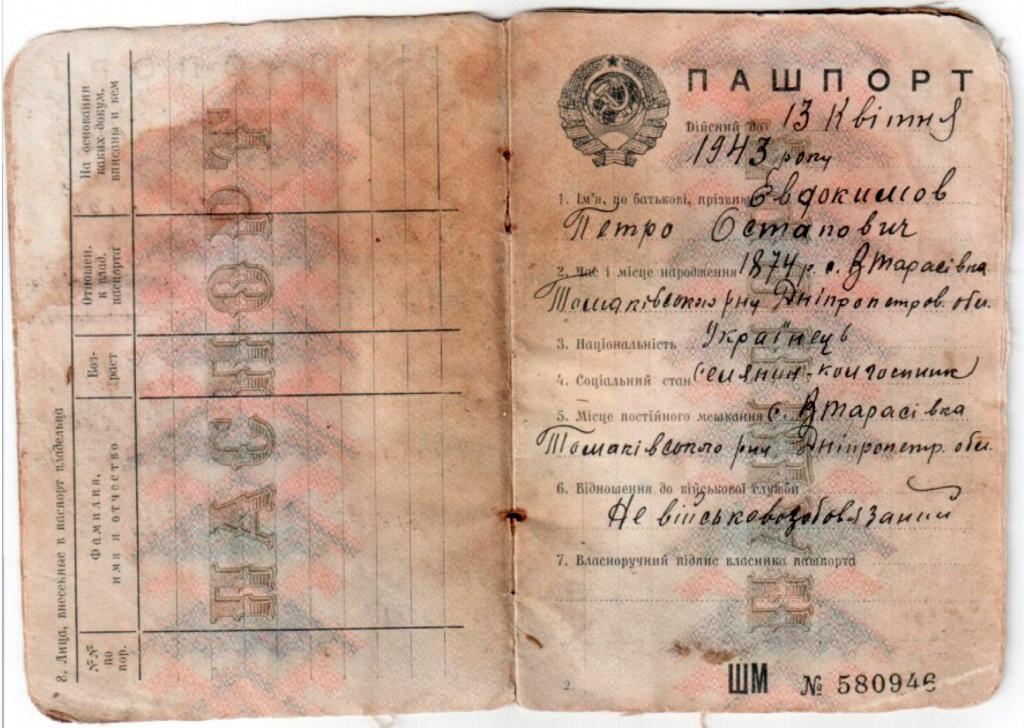 8. Лица, внесенные в паспорт владельца
№№ по пор.
Фамилия, имя и отчество
Воз-раст
Отношен. к влад. паспорта
На основании каких докум. вписаны и кем
ПАСПОРТ
ПАШПОРТ
Дійсний до 13 Квітня
1943 року
1. Ім'я, по батькові, прізвищ Евдокимов
Петро Остапович
2. Час і місце народження 1874 р. с. Втарасівка
Томаківського р-ну Дніпропетров. обл.
3. Національність Українець
4. Соціальний стан Селянин-
5. Місце постійного мешкання с. Втарасівка
Томаківського р-ну, Дніпропетр. обл.
6. Відношення до військової служби
Не військовозобовязаний
7. Власноручний підпис власника пашпорта
2
ШМ № 580946